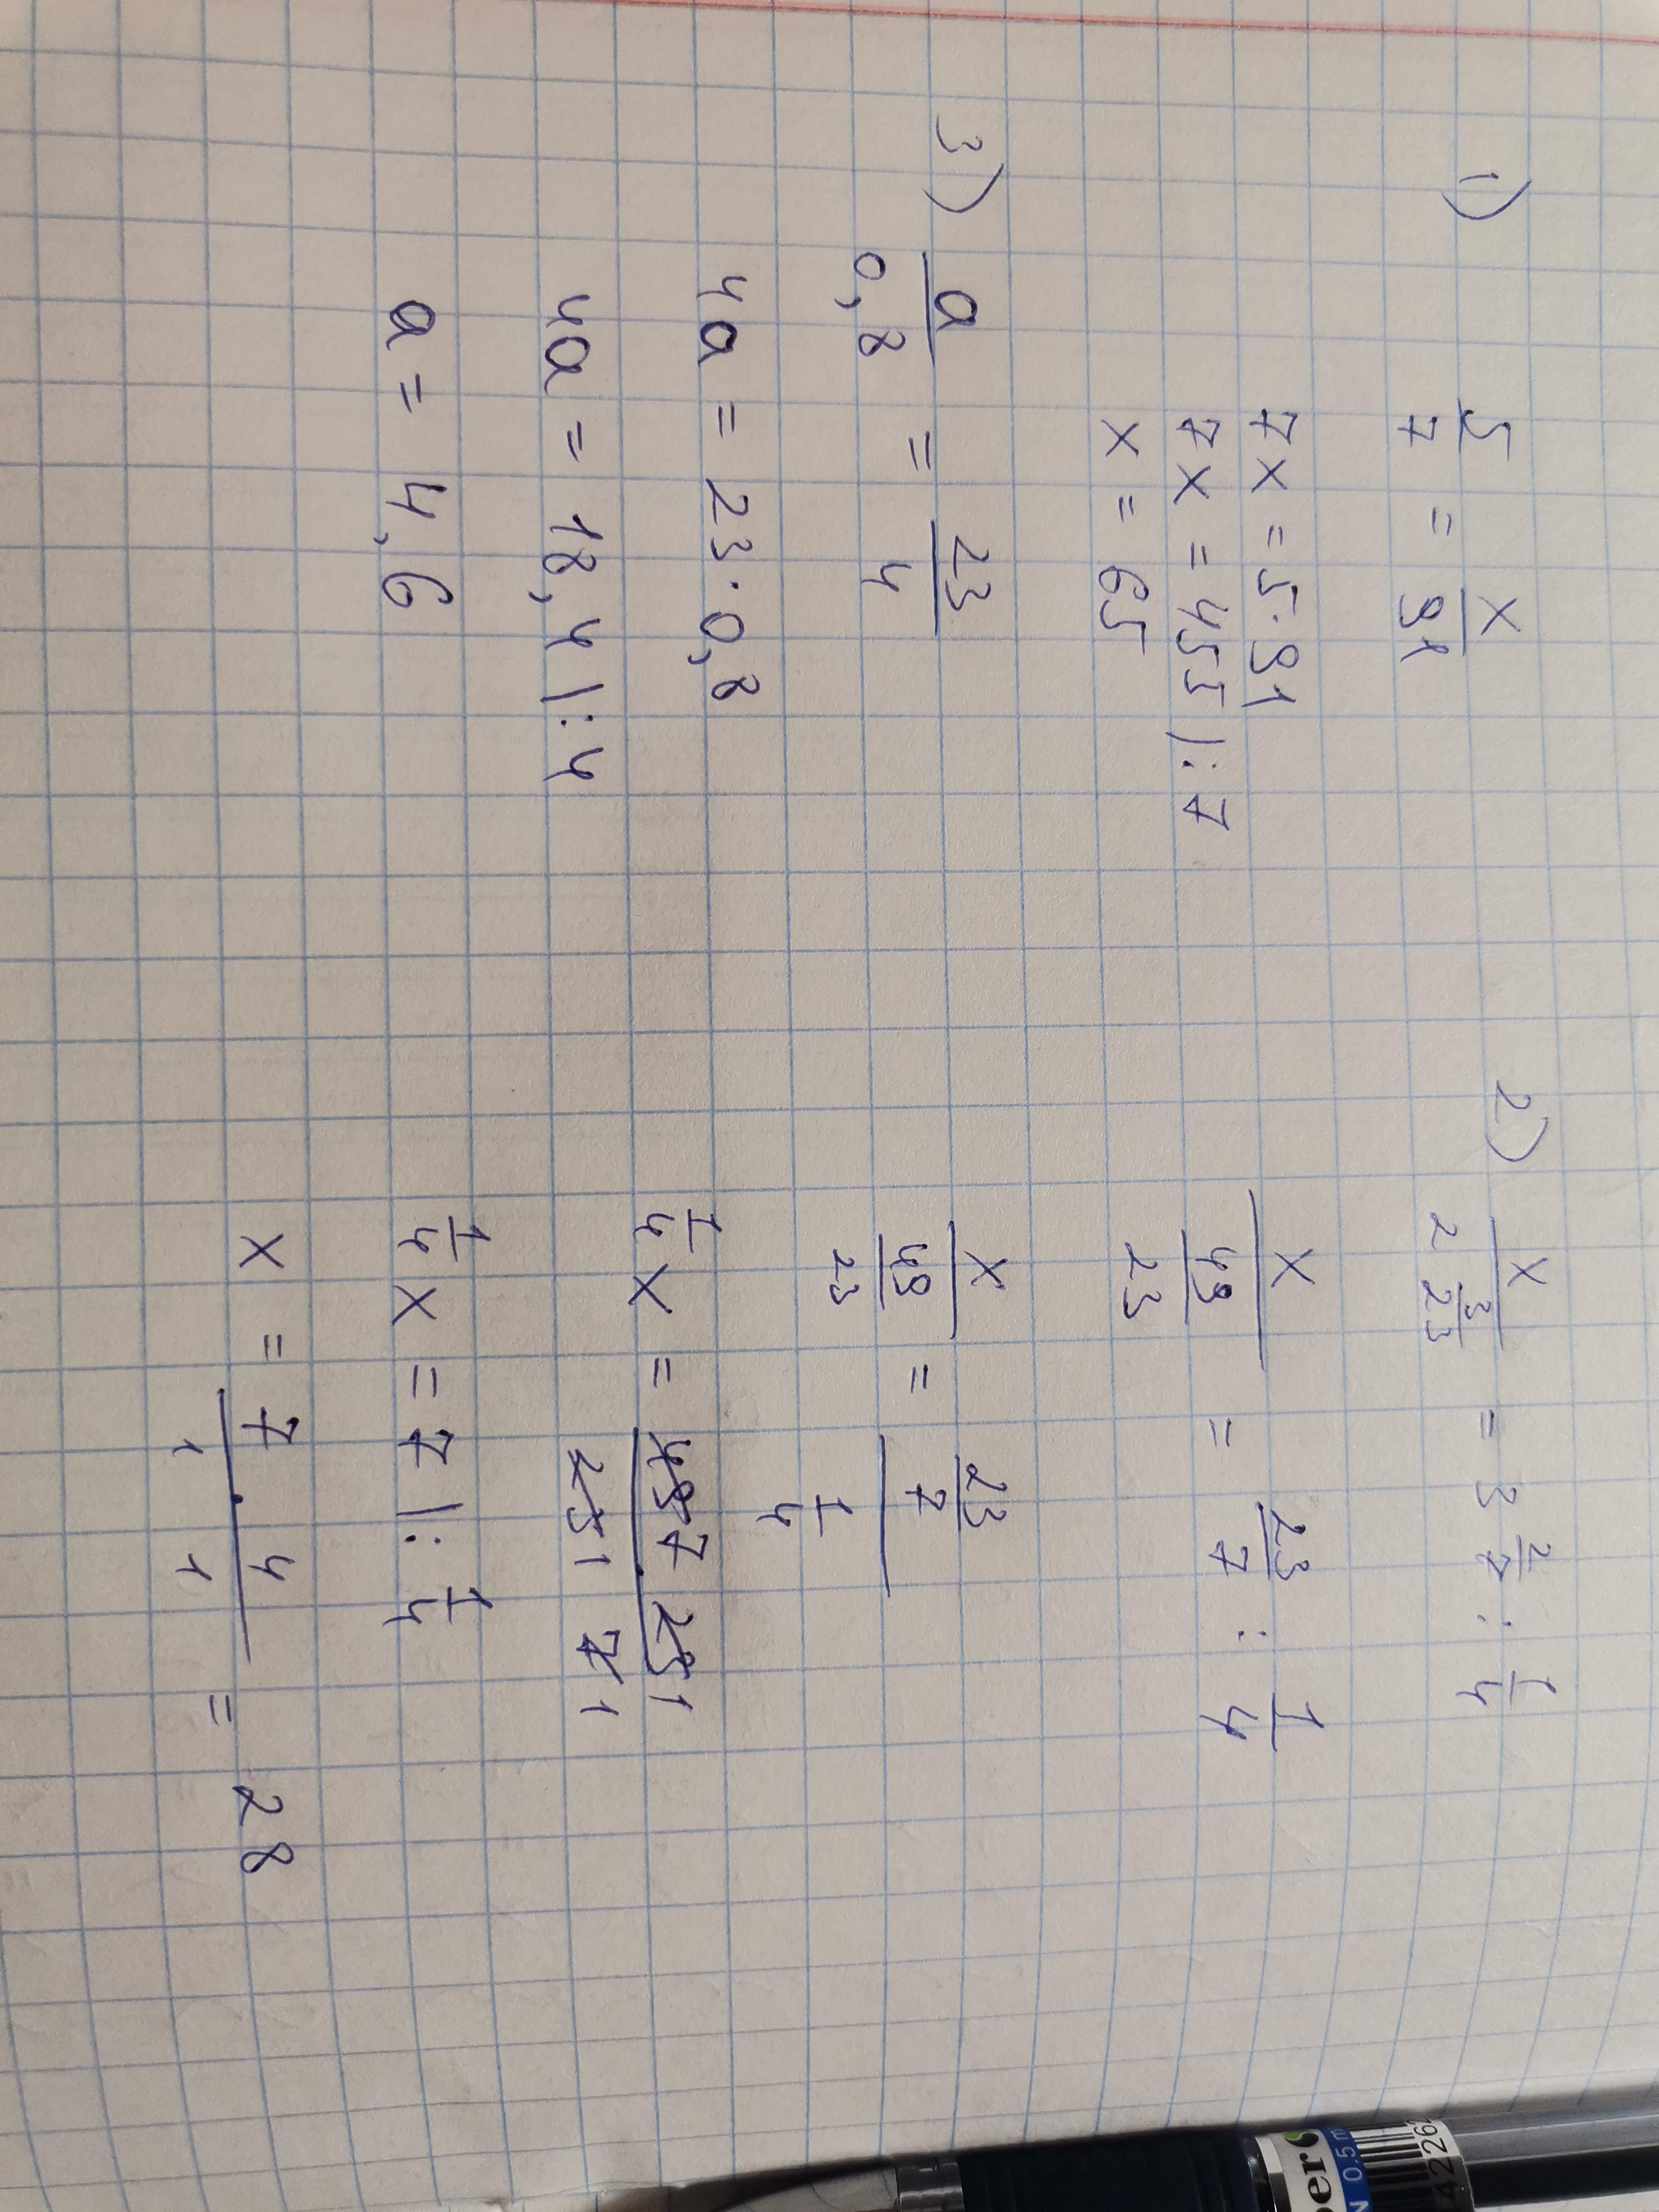 1) 5/7 = x/91
7x = 5·91
7x = 455 |:7
x = 65
2) x/(2 3/23) = 3 2/7 : 1/4
x/(49/23) = 23/7 : 1/4
x/(49/23) = (23/7)/(1/4)
1/4 x = (49 7 · 23 1)/(23 1 7 1)
1/4 x = 7 |: 1/4
x = 7/1 · 4/1 = 28
3) a/0,8 = 23/4
4a = 23·0,8
4a = 18,4 |:4
a = 4,6
0.5 m